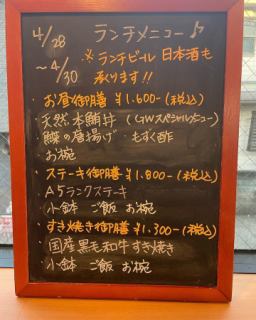 4/28 ランチメニュー♪
～4/30 ※ランチビール 日本酒も
承ります!!
・お昼御膳 ¥1.600-(税込)
・天然本鮪丼 (GWスペシャルメニュー)
鰹の唐揚げ もずく酢
お椀
・ステーキ御膳 ¥1.800-(税込)
A5ランクステーキ
小鉢 ご飯 お椀
・すき焼き御膳 ¥1.300-(税込)
・国産黒毛和牛すき焼き
小鉢 ご飯 お椀